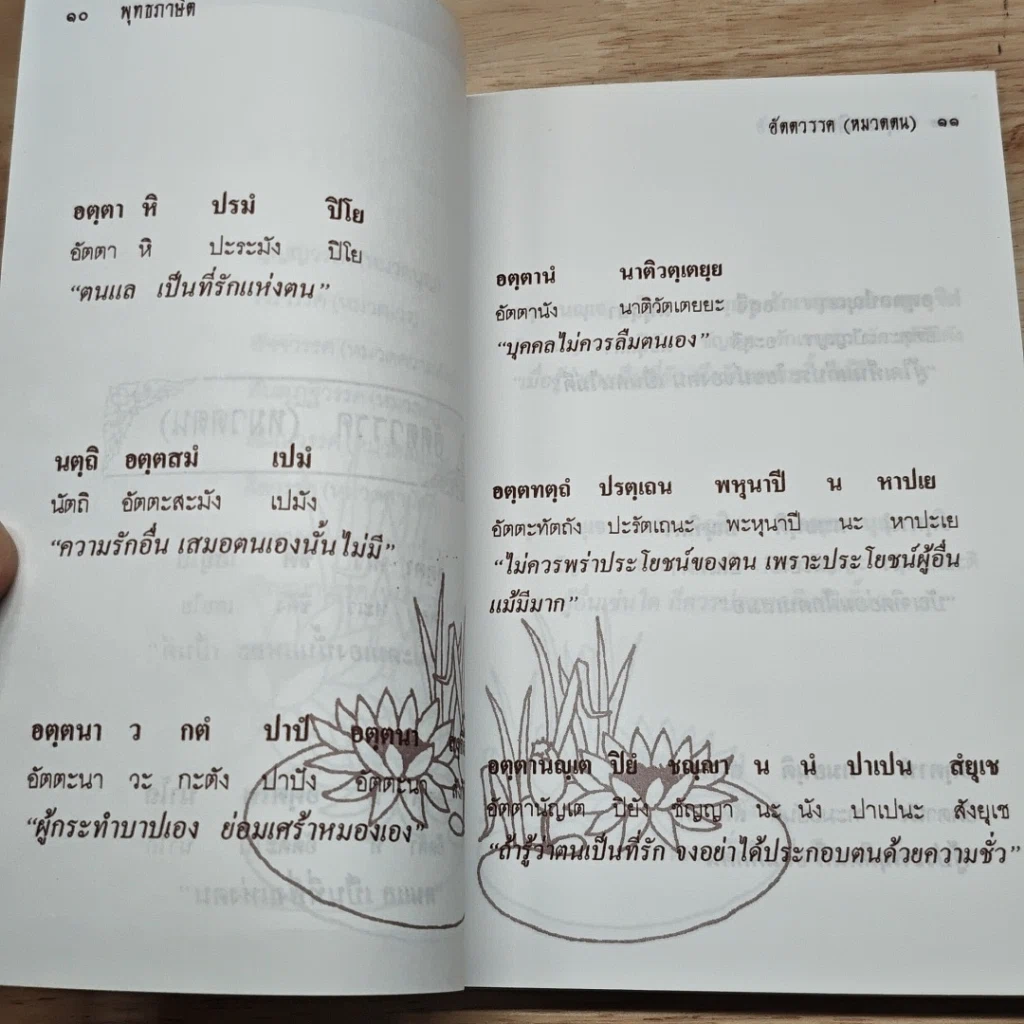 ๑๐ พุทธภาษิต
อตฺตา หิ ปรมํ ปิโย
อัตตา หิ ปะระมัง ปิโย
“ตนแล เป็นที่รักแห่งตน”
นตฺถิ อตฺตสมํ เปมํ
นัตถิ อัตตะสะมัง เปมัง
“ความรักอื่น เสมอตนเองนั้น ไม่มี”
อตฺตนา ว กตํ ปาปํ อตฺตนา
อัตตะนา วะ กะตัง ปาปัง อัตตะนา
“ผู้กระทำบาปเอง ย่อมเศร้าหมองเอง”
อัตตวรรค (หมวดตน) ๑๑
อตฺตานํ นาติวตฺเตยฺย
อัตตานัง นาติวัตเตยยะ
“บุคคลไม่ควรลืมตนเอง”
อตฺตทตฺถํ ปรตฺเถน พหุนาปิ น หาปเย
อัตตะทัตถัง ปะรัตเถนะ พะหุนาปี นะ หาปะเย
“ไม่ควรพร่าประโยชน์ของตน เพราะประโยชน์ผู้อื่น
แม้มีมาก”
อตฺตานญฺเต ปิยํ ชญฺญา น นํ ปาเปน สํยุเช
อัตตานัญเต ปิยัง ชัญญา นะ นัง ปาเปนะ สังยุเช
“ถ้ารู้ว่าตนเป็นที่รัก จงอย่าได้ประกอบตนด้วยความชั่ว”